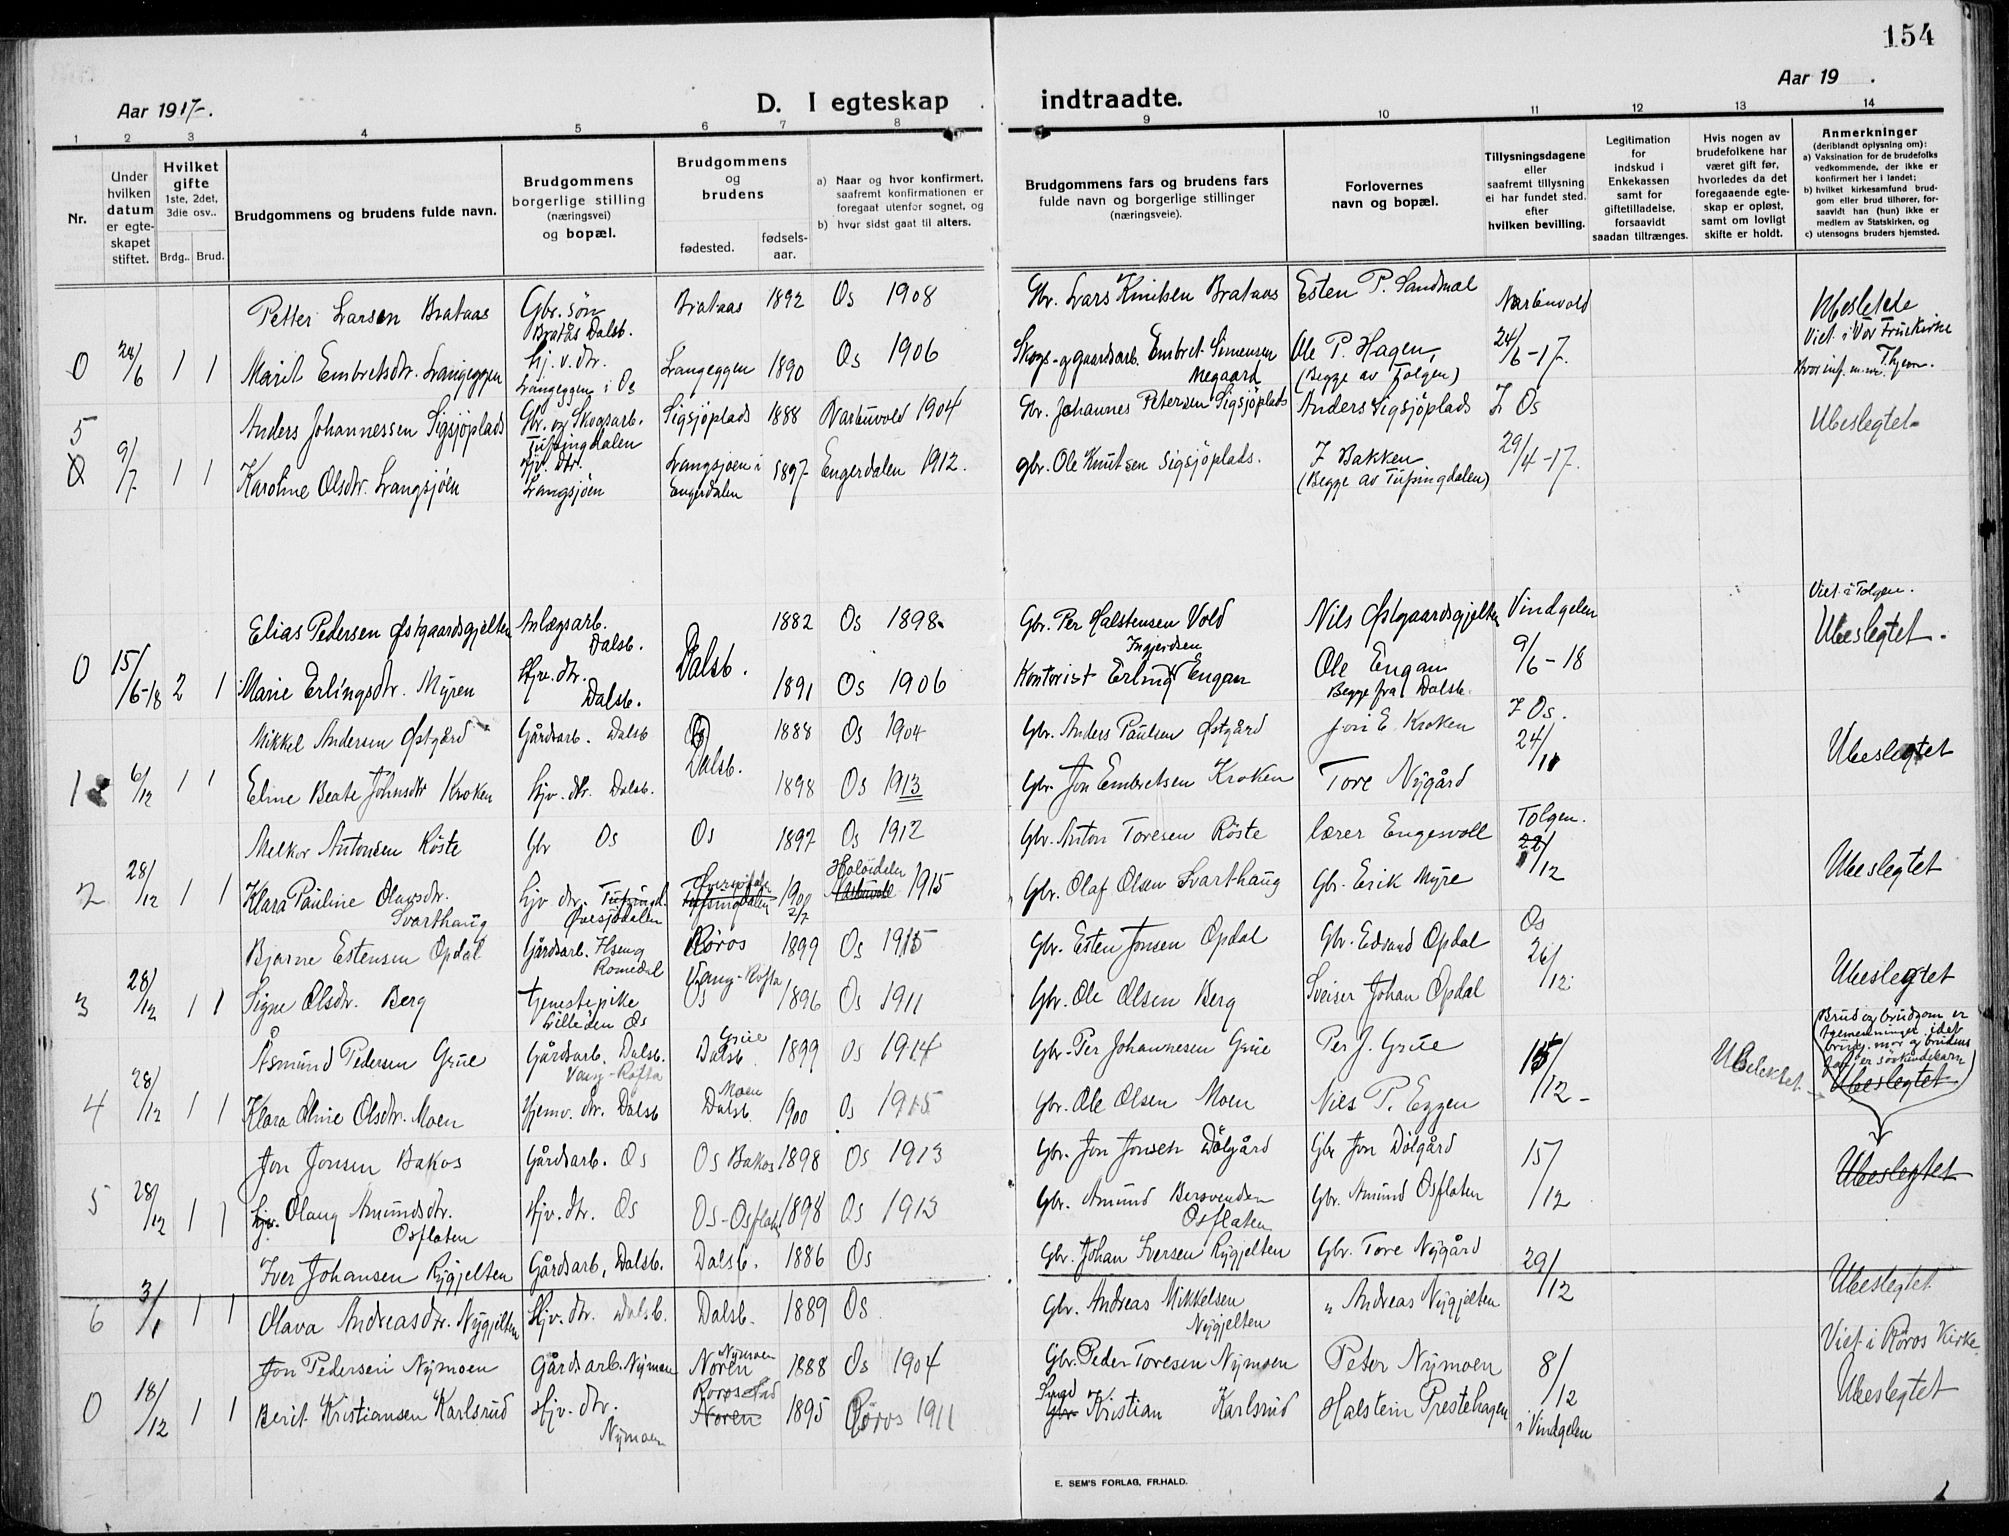 154
Aar 1917. D. I egteskap indtraadte. Aar 19 .
1 2 3 4 5 6 7 8 9 10 11 12 13 14
Nr.
Under hvilken datum er egte-skapet stiftet.
Hvilket gifte 1ste, 2det, 3die osv..
Brdg.. Brud.
Brudgommens og brudens fulde navn.
Brudgommens borgerlige stilling (næringsvei) og bopæl.
Brudgommens og brudens
fødested. fødsels-aar.
a) Naar og hvor konfirmert, saafremt konfirmationen er foregaat utenfor sognet, og
b) hvor sidst gaat til alters.
Brudgommens fars og brudens fars fulde navn og borgerlige stillinger (næringsveie).
Forlovernes navn og bopæl.
Tillysningsdagene eller saafremt tillysning ei har fundet sted. efter hvilken bevilling.
Legitimation for indskud i Enkekassen samt for giftetilladelse, forsaavidt saadan tiltrænges.
Hvis nogen av brudefolkene har været gift før, hvorledes da det foregaaende egte-skap er opløst, samt om lovligt skifte er holdt.
Anmerkninger (deriblandt oplysning om):
a) Vaksination for de brudefolks vedkommende, der ikke er konfirmert her i landet;
b) hvilket kirkesamfund brud-gom eller brud tilhører, for-saavidt han (hun) ikke er medlem av Statskirken, og
c) utensogns bruders hjemsted.
Petter Larsen Brataas Gbr. søn Bratås Dalsb. Brataas 1892 Os 1908 Gbr. Lars Knutsen Brataas Esten P. Sandmæl Narbuvold Ubeslegtede
Viet i Vor Fruekirke
0 24/6 1 1 Marit Embretsdtr. Langeggen Hj.v. dtr. Langeggen i Os Langeggen 1890 Os 1906 Skogs- og gaardsarb. Embret Simensen Negaard Ole P. Hagen, (Begge av Tolgen) 24/6-17.
Anders Johannessen Sigsjöplads Gbr. og Skogsarb. Tufsingdalen Sigsjöplads 1888 Narbuvold 1904 Gbr. Johannes Petersen Sigsjöplads Anders Sigsjöplads I Os Ubeslegtet
5 0 9/7 1 1 Karoline Olsdtr. Langsjöen Hjv. dtr. Langsjöen Langsjøen i Engerdalen 1897 Engerdalen 1912. gbr. Ole Knutsen Sigsjöplads. I Bakken (Begge av Tufsingdalen) 29/4-17.
Viet i Tolgen.
Elias Pedersen Østgaardsgjelten Anlægsarb. Dalsb. 1882 Os 1898. Gbr. Per Halstensen Vold Nils Østgaardsgjelten Vindgelen Ubeslegtet.
0 15/6-18 2 1 Marie Erlingsdtr. Myren Hjv. dtr. Dalsb. Dalsb. 1891 Os 1906 Kontorist Erling Ingjerdsen Engan Ole Engan Begge fra Dalsb. 9/6-18
Mikkel Andersen Østgård Gårdsarb. Dalsb Os 1888 Os 1904 Gbr. Anders Paulsen Østgård Jon E. Kroken I Os. 24/11 Ubeslegtet
1 6/12 1 1 Eline Beate Johnsdtr Kroken Hjv. dtr. Dalsb. Dalsb. 1898 Os 1913 Gbr. Jon Embretsen Kroken Tore Nygård
Melkor Antonsen Röste Gbr Os Os 1897 Os 1912 Gbr. Anton Toresen Röste lærer Engevoll Tolgen.
2 28/12 1 1 Klara Pauline Olavsdtr. Svarthaug Hjv dtr. Tufsingd. Øversjödalen Øversjödalen Tufsingdalen 1900 2/7 Holöidalen Narbuvoll 1915 Gbr. Olaf Olsen Svarthaug Gbr. Erik Myre 28/12 Ubeslegtet
Bjarne Estensen Opdal Gårdsarb. Ilseng Romedal Röros 1899 Os 1915 Gbr. Esten Jonsen Opdal Gbr. Edvard Opdal Os
3 28/12 1 1 Signe Olsdtr. Berg tjenestepike Lilleden Os Vang-Röfta Os 1896 Os 1911 Gbr. Ole Olsen Berg Sveiser Johan Opdal 26/12. Ubeslegtet
Åsmund Pedersen Grue Gårdsarb. Dalsb. Vang-Röfta Grue Dalsb. 1899 Os 1914 Gbr. Per Johannesen Grue Per J. Grue Brud og brudgom er tremenninger, idet brudg. mor og brudens far er söskendebarn
4 28/12 1 1 Klara Oline Olsdtr. Moen Hjemv. dtr. Dalsb Moen Dalsb. 1900 Os 1915 Gbr. Ole Olsen Moen Niels P. Eggen 15/12 Ubeslektet Ubeslegtet
Jon Jonsen Bakos Gårdsarb. Os Os Bakos 1898 Os 1913 Gbr. Jon Jonsen Dölgård Gbr Jon Dölgård
5 28/12 1 1 Hjv. Olaug Amundsdtr. Osflaten Hjv. dtr. Os Os-Osflaten 1898 Os 1913 Gbr. Amund Bersvendsen Osflaten Gbr. Amund Osflaten 15/12 Ubeslegtet
Iver Johansen Rygjelten Gårdsarb, Dalsb. Dalsb. 1886 Os Gbr. Johan Iversen Rygjelten Gbr. Tore Nygård
6 3/1 1 1 Olava Andreasdtr. Nygjelten Hjv. dtr. Dalsb. Dalsb. 1889 Os Gbr. Andreas Mikkelsen Nygjelten " Andreas Nygjelten 29/12 Ubeslegtet
Jon Pedersen Nymoen Gårdsarb. Nymoen Nymoen Noren 1888 Os 1904 Gbr. Peder Toresen Nymoen Peter Nymoen Viet i Röros Kirke.
0 18/12 1 1 Berit Kristiansen Karlsrud Hjv. dtr. Nymoen Röros Noren 1895 Röros 1911 Gbr. Kristian Karlsrud Halstein Prestehagen 8/12 i Vindgelen Ubeslegtet
E. SEM'S FORLAG, FR.HALD.